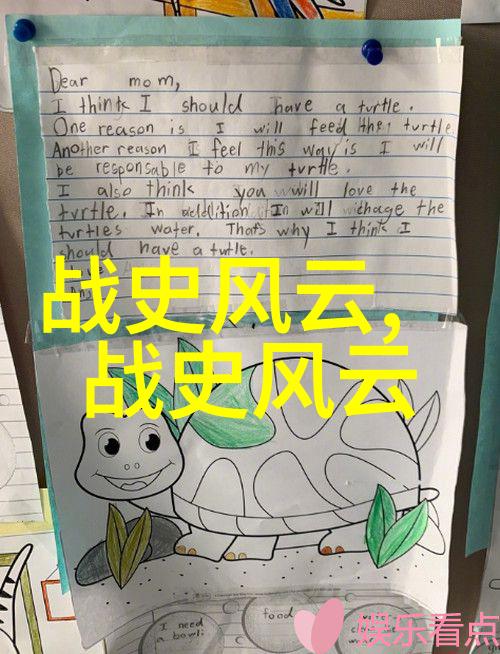 Dear mom,
I think I should have a turtle.
One reason is I will feed the turtle.
Another reason I feel this way is I will
be responsable to my turtle.
I also think you will love the
turtle. In addition I will chage the
turtles water. Thats why I think I
should have a turtle.
战史风云,
战史风云
I need
a bowl
food
娱乐看点